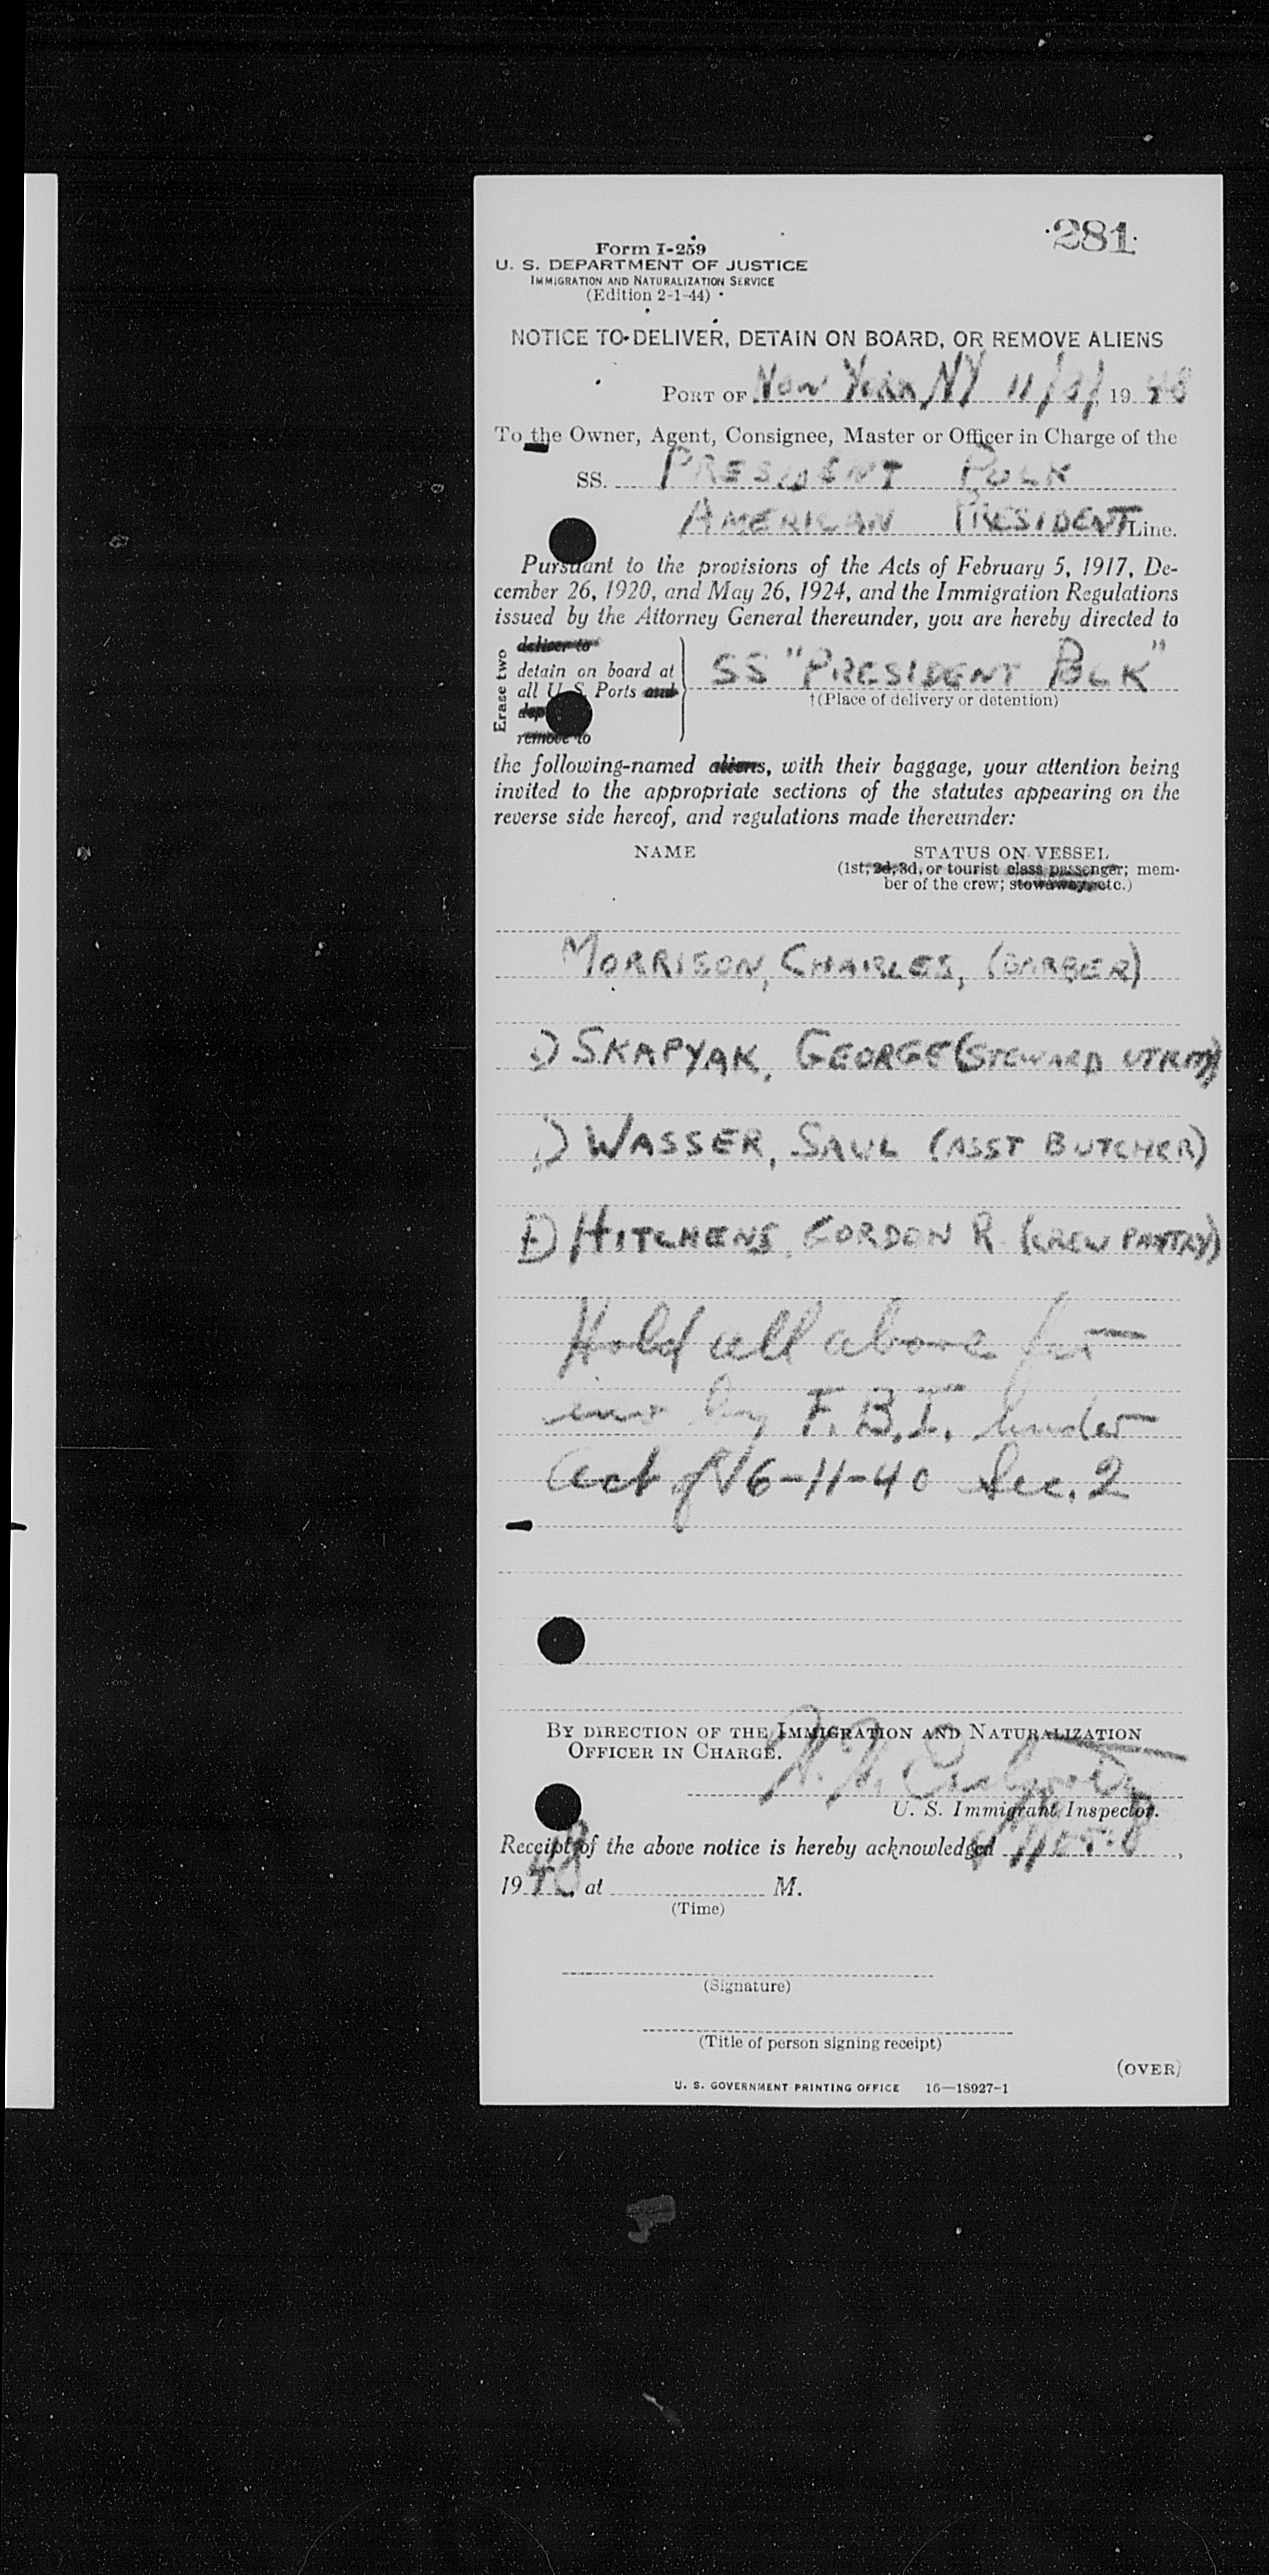 281
Form I-259
U. S. DEPARTMENT OF JUSTICE
IMMIGRATION AND NATURALIZATION SERVICE
(Edition 2-1-44)
NOTICE TO DELIVER, DETAIN ON BOARD, OR REMOVE ALIENS
PORT OF New York NY 11/ 19 48
To the Owner, Agent, Consignee, Master or Officer in Charge of the
SS. PRESIDENT POLK
AMERICAN PRESIDENT Line.
Pursuant to the provisions of the Acts of February 5, 1917, De-
cember 26, 1920, and May 26, 1924, and the Immigration Regulations
issued by the Attorney General thereunder, you are hereby directed to
Erase two
deliver to
detain on board at
all U. S. Ports and
dep
remove to
SS "PRESIDENT POLK"
†(Place of delivery or detention)
the following-named aliens, with their baggage, your attention being
invited to the appropriate sections of the statutes appearing on the
reverse side hereof, and regulations made thereunder:
NAME STATUS ON VESSEL
(1st, 2d, 3d, or tourist class passenger; mem-
ber of the crew; stowaway, etc.)
MORRISON, CHARLES, (BARBER)
SKAPYAK, GEORGE (STEWARD UTILITY)
WASSER, SAUL (ASST BUTCHER)
HITCHENS, GORDON R. (CREW PANTRY)
Hold all above for
inv by F.B.I. under
Act of 6-11-40 Sec. 2
BY DIRECTION OF THE IMMIGRATION AND NATURALIZATION
OFFICER IN CHARGE.
U. S. Immigrant Inspector.
Receipt of the above notice is hereby acknowledged ,
19 48, at M.
(Time)
(Signature)
(Title of person signing receipt)
(OVER)
U. S. GOVERNMENT PRINTING OFFICE 16—18927-1